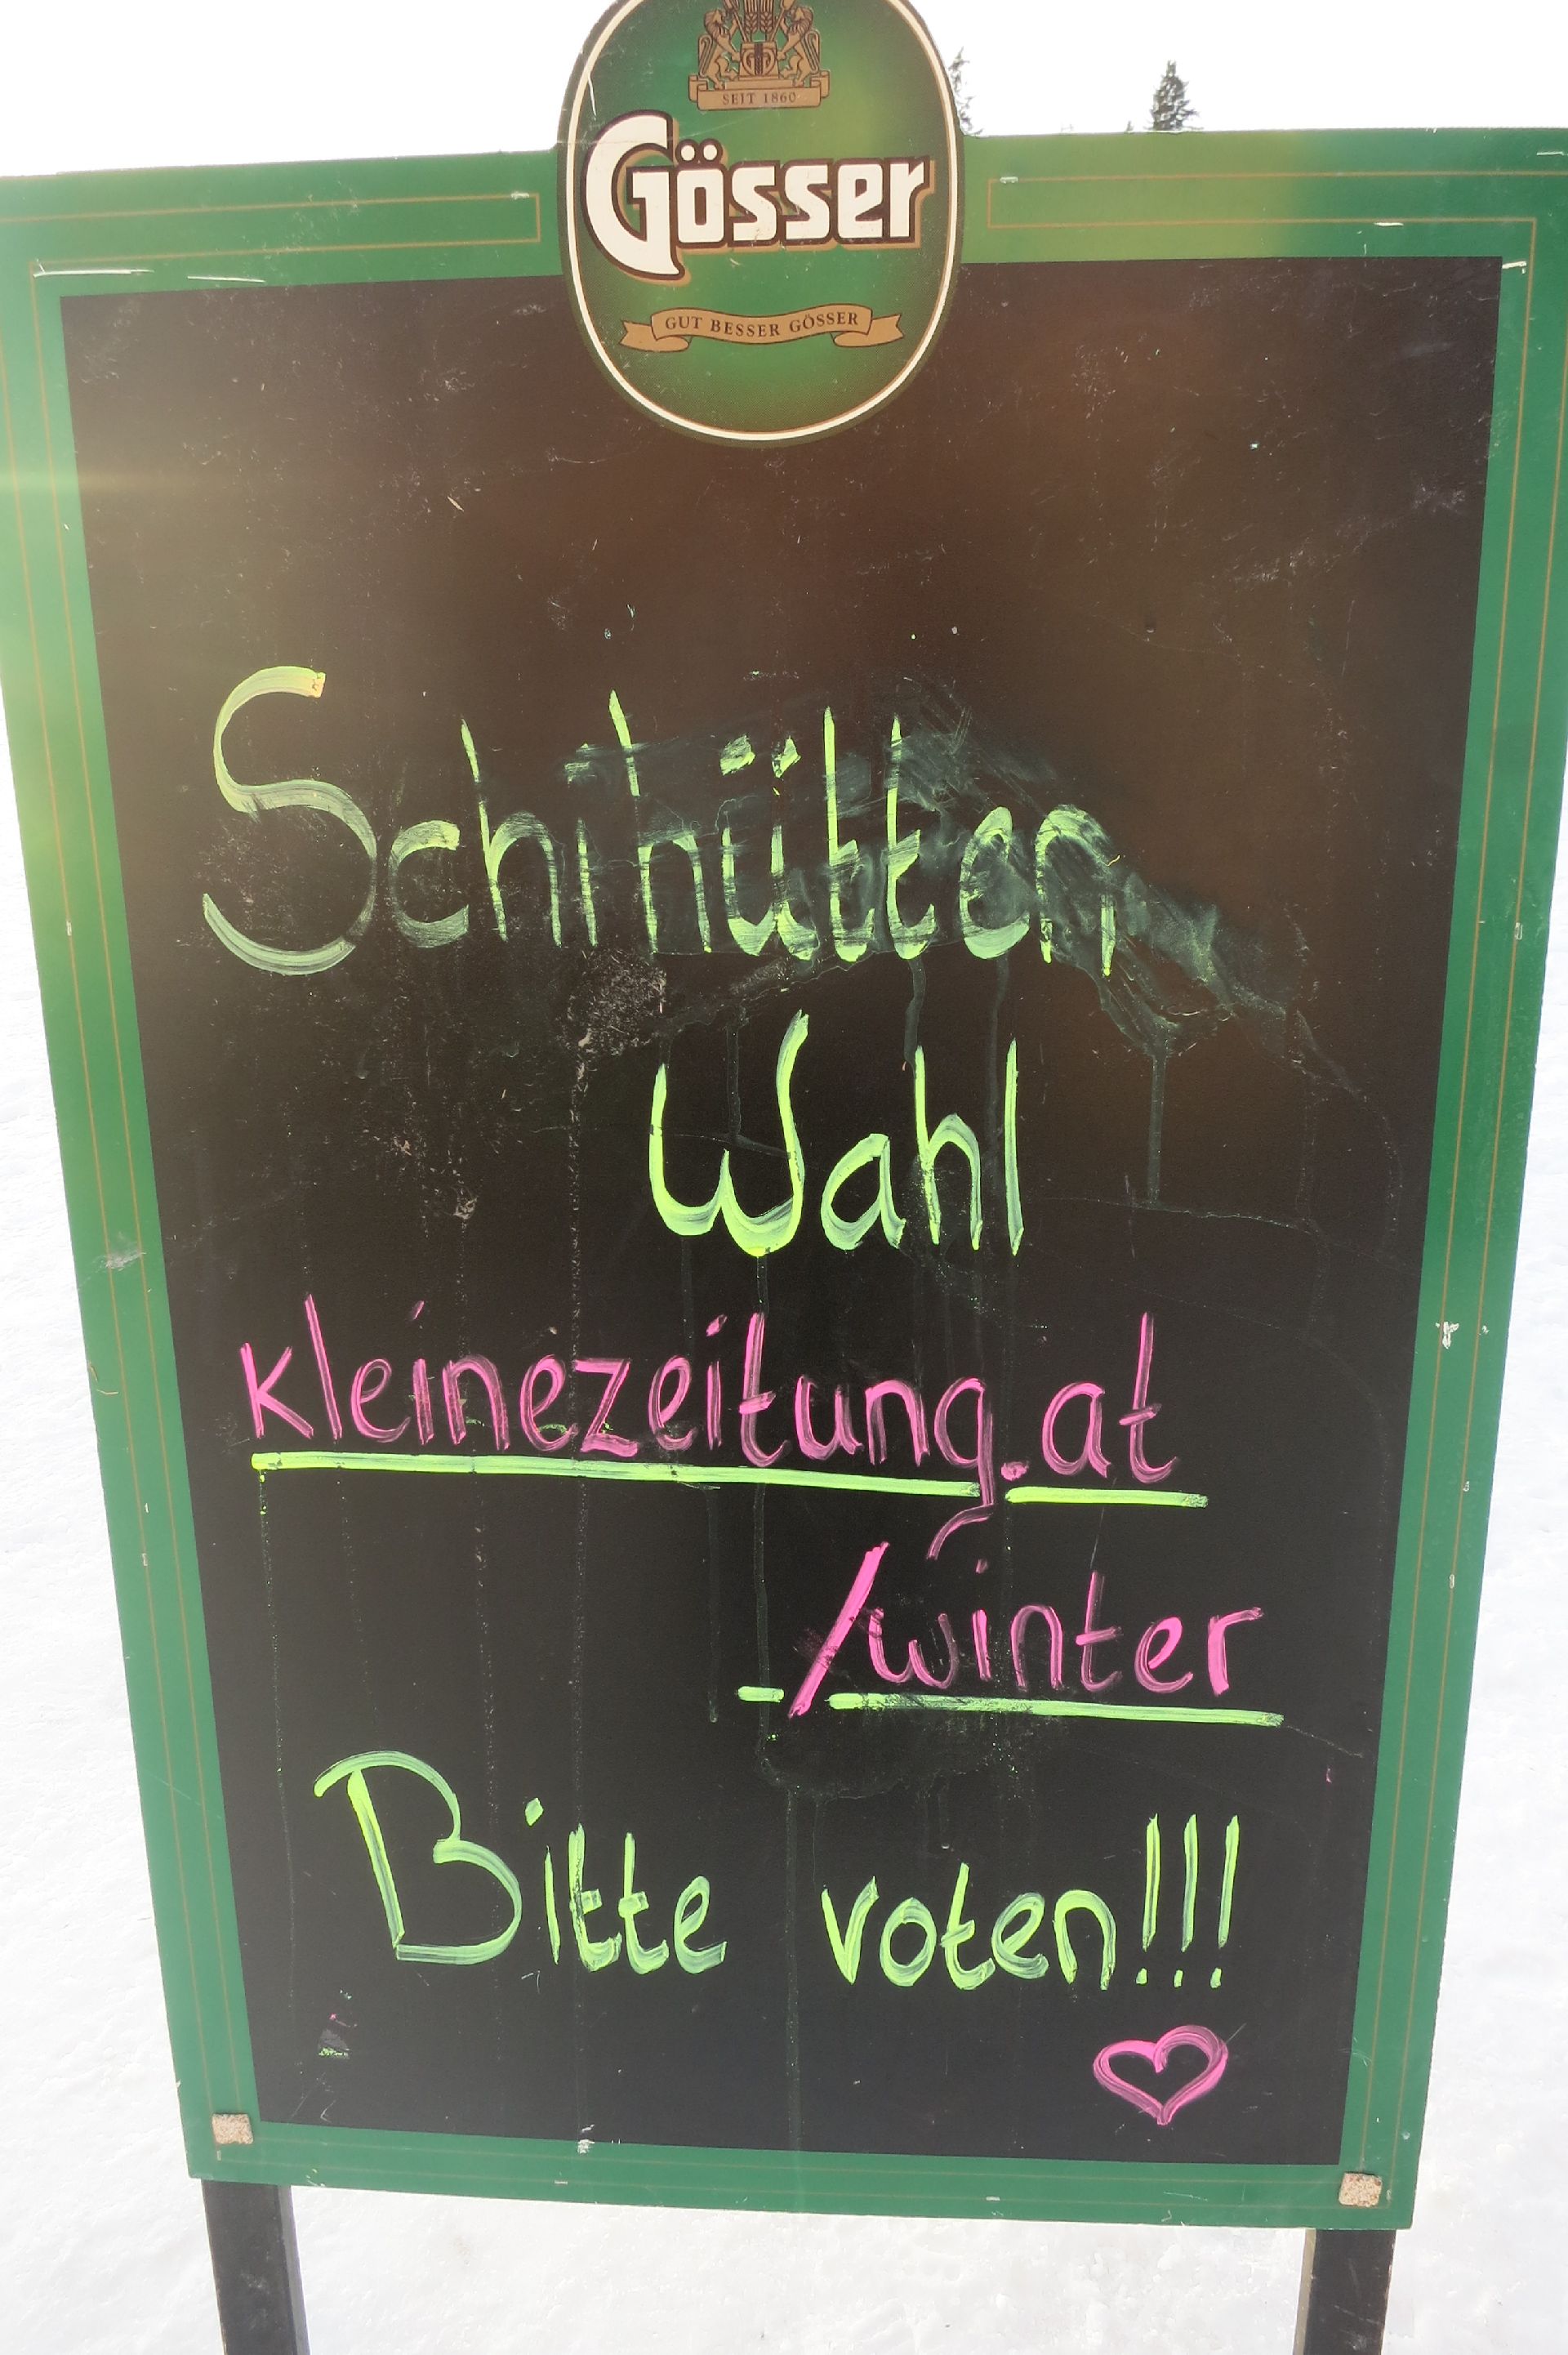 SEIT 1860
Gösser
GUT BESSER GÖSSER
Schihütten
Wahl
kleinezeitung.at
/winter
Bitte voten!!!